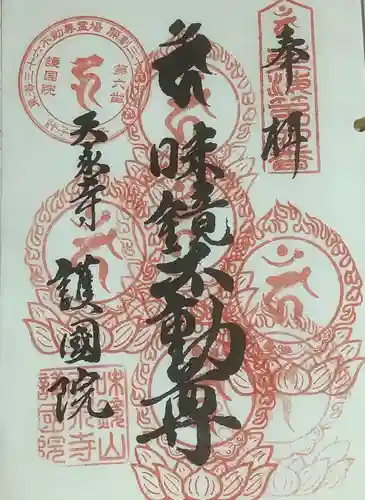 奉拝
味鏡不動尊
天永寺
護國院
三十六不動尊霊場
第六番
護国院
味鏡山
天永寺
護国院